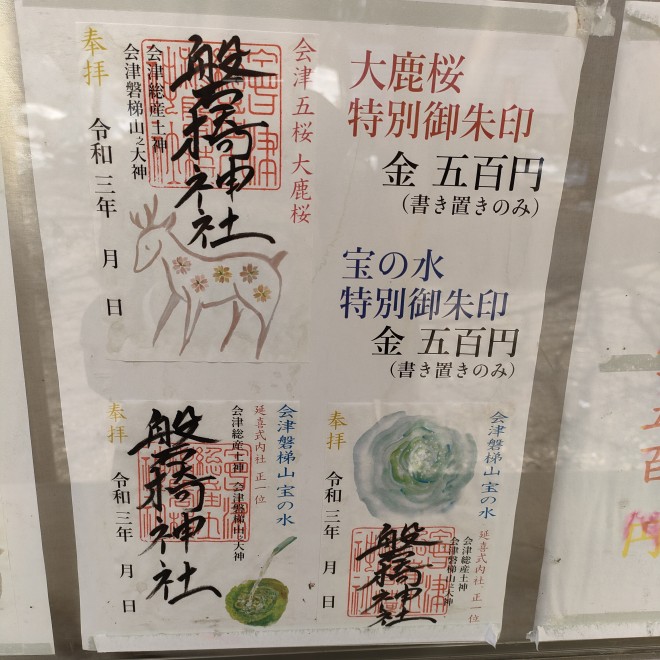 大鹿桜
特別御朱印
金 五百円
(書き置きのみ)
宝の水
特別御朱印
金 五百円
(書き置きのみ)
会津五桜 大鹿桜
磐椅神社
会津総産土神
会津磐梯山之大神
奉拝
令和三年 月 日
会津磐梯山 宝の水
延喜式内社 正一位
会津総産土神 会津磐梯山之大神
磐椅神社
奉拝
令和三年 月 日
会津磐梯山 宝の水
延喜式内社 正一位
会津総産土神
会津磐梯山之大神
磐椅神社
奉拝
令和三年 月 日
五百
円